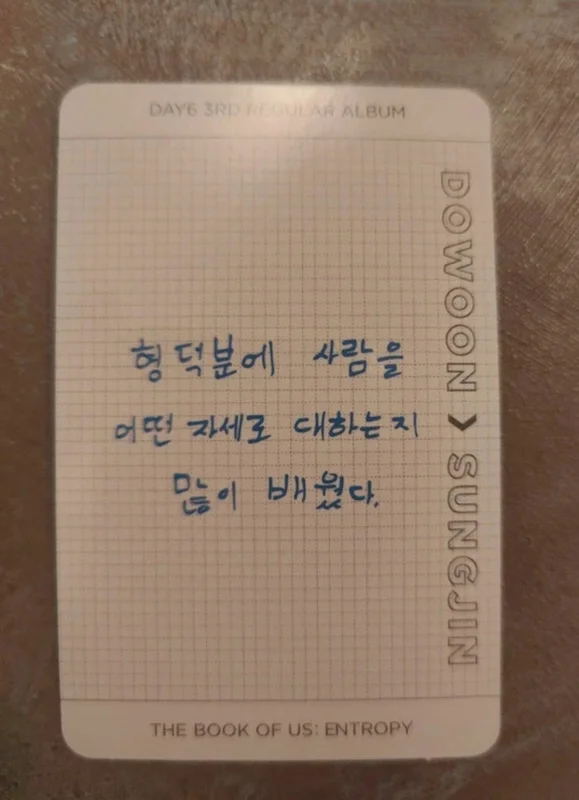 DAY6 3RD REGULAR ALBUM
형 덕분에 사람을
어떤 자세로 대하는지
많이 배웠다.
DOWOON > SUNGJIN
THE BOOK OF US: ENTROPY